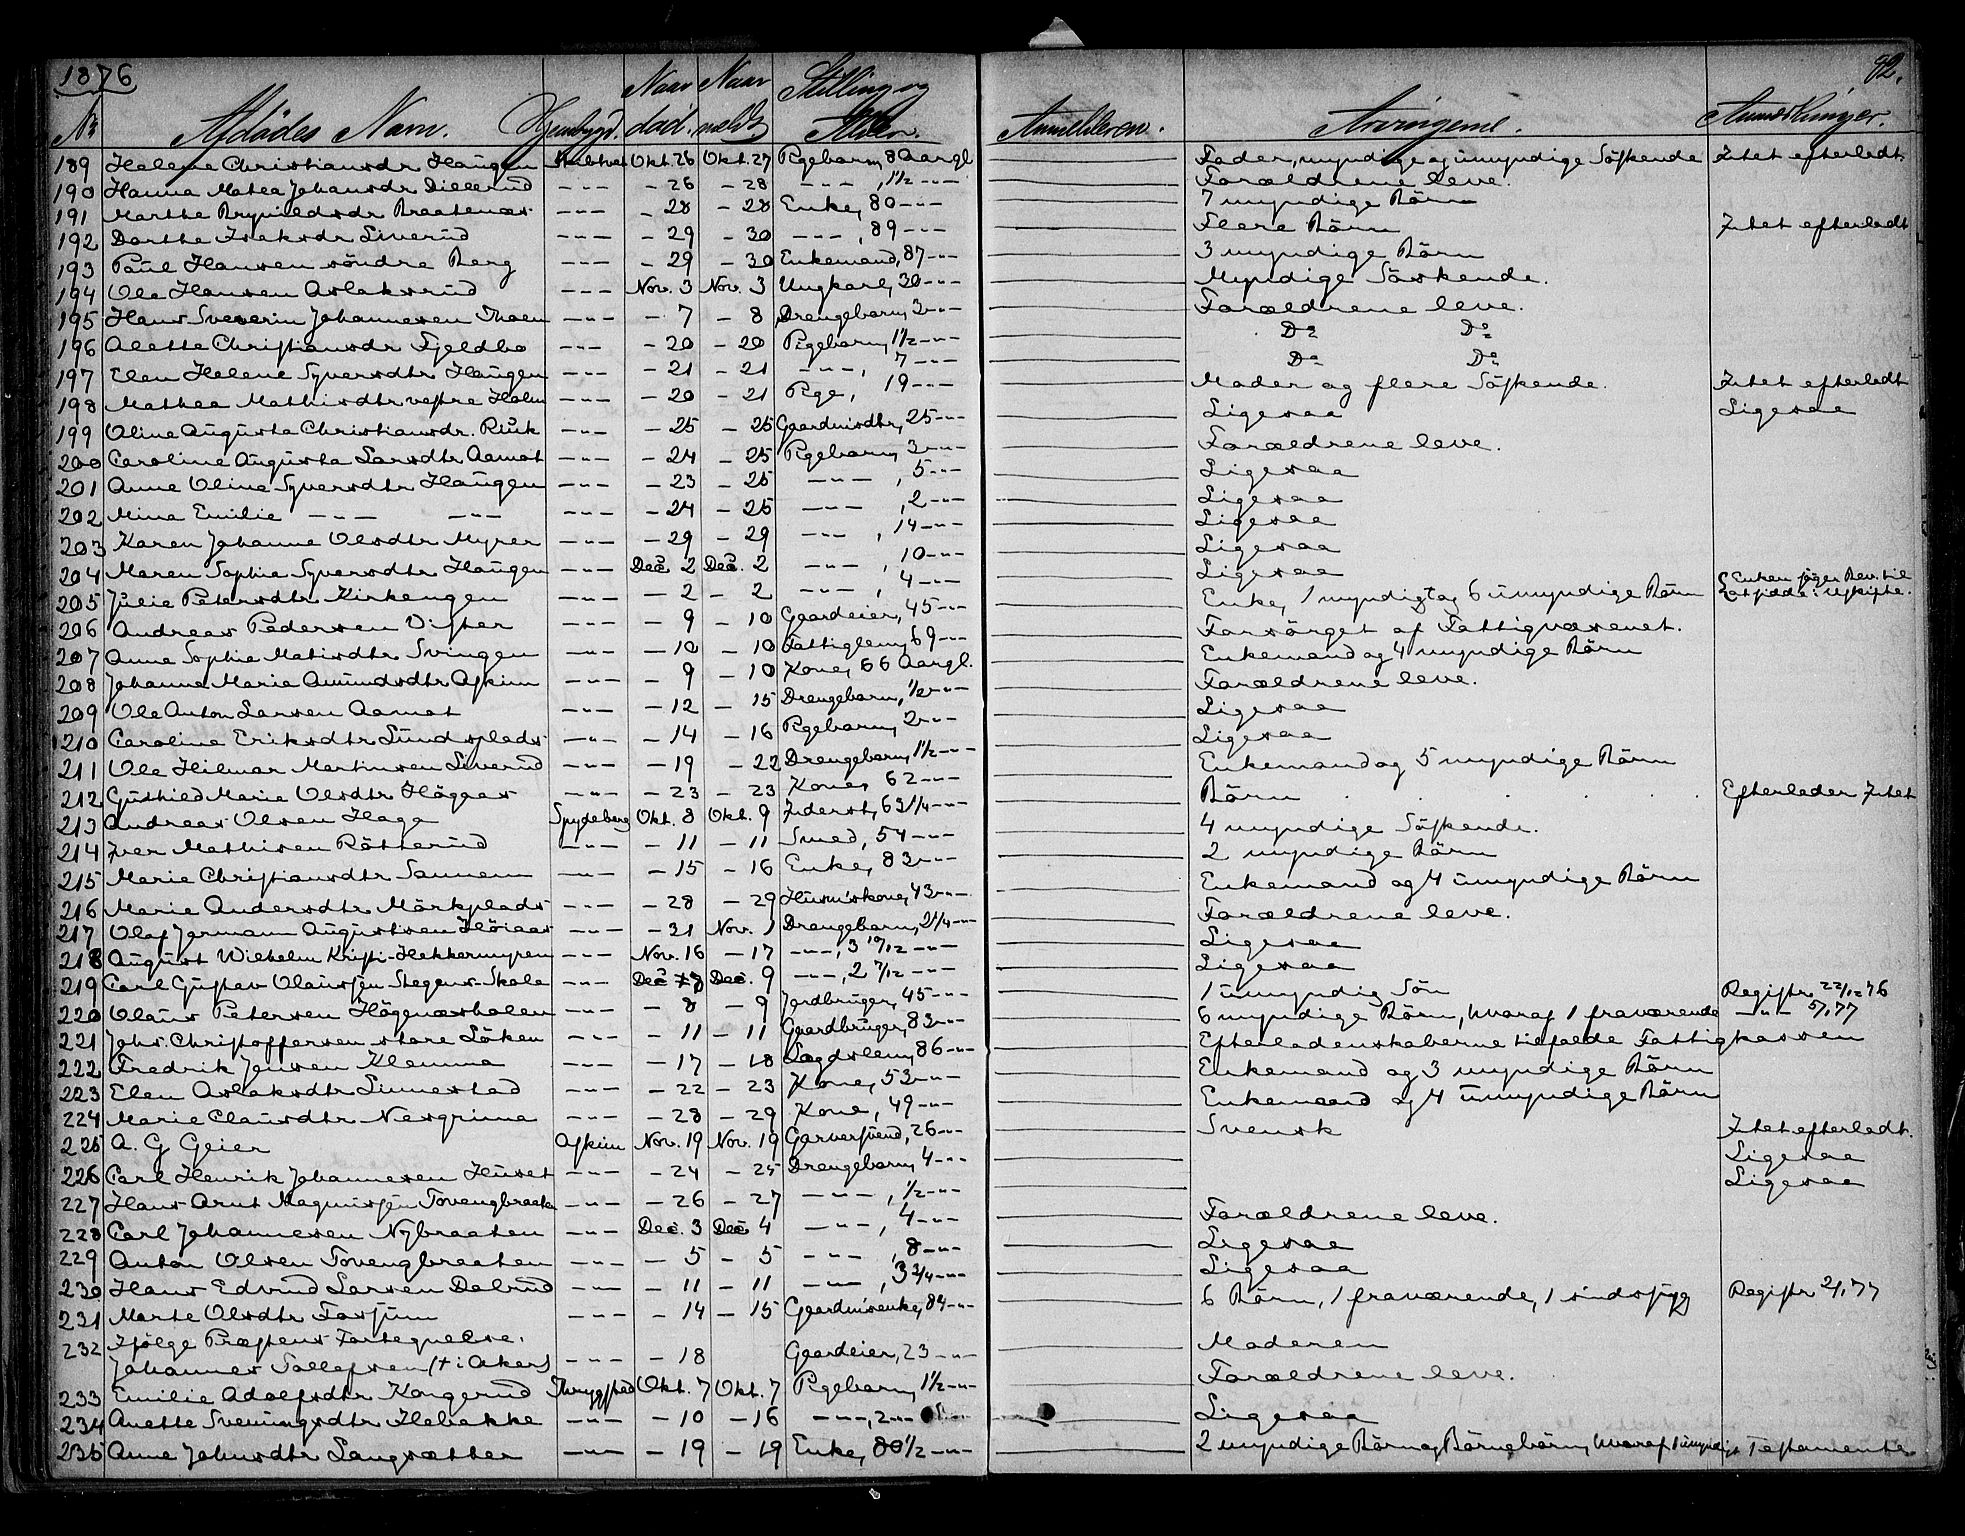 1876
82.
№ Afdödes Navn. Hjembygd. Naar död. Naar meldt Stilling og Alder. Anmelderen. Arvingerne. Anmærkninger.
189 Helene Christiansdr Haugen Okt. 26 Okt. 27 Pigebarn, 8 Aargl. Fader, myndige og umyndige Söskende Intet efterladt.
190 Hanna Mathea Johansdr Dillerud -"- - 26 - 28 -"-, 1½ -"- Forældrene leve.
191 Marthe Brynildsdr Braatenæs -"- - 28 - 28 Enke, 80 -"- 7 myndige Börn
192 Dorthe Isaksdr Siverud -"- - 29 - 30 -"-, 89 -"- Flere Börn Intet efterladt
193 Paul Hansen söndre Berg -"- - 29 - 30 Enkemand, 87 -"- 3 myndige Börn
194 Ole Hansen Aslaksrud -"- Nov. 3 Nov. 3 Ungkarl, 30 -"- Myndige Söskende.
195 Hans Severin Johannesen Thoen -"- - 7 - 8 Drengebarn, 3 -"- Forældrene leve.
196 Alette Christiansdr Fjeldbo -"- - 20 - 20 Pigebarn, 1½ -"- Do Do
197 Elen Helene Syversdtr Haugen -"- - 21 - 21 -"-, 7 -"- Do Do
198 Mathea Mathisdtr vestre Holm -"- - 20 - 21 Pige, 19 -"- Moder og flere Söskende. Intet efterladt
199 Oline Augusta Christiansdr. Riuk -"- - 25 - 25 Gaardmsdtr, 25 -"- Ligesaa Ligesaa
200 Caroline Augusta Larsdtr Aamot -"- - 24 - 25 Pigebarn, 3 -"- Forældrene leve.
201 Anne Oline Syversdtr Haugen -"- - 23 - 25 -"-, 5 -"- Ligesaa
202 Mina Emilie -"- -"- -"- - 24 - 25 -"-, 2 -"- Ligesaa
203 Karen Johanne Olsdtr Myrer -"- - 29 - 29 -"-, 14 -"- Ligesaa
204 Maren Sophie Syversdtr Haugen -"- Dec. 2 Dec. 2 -"-, 10 -"- Ligesaa
205 Julie Petersdtr Kirkengen -"- - 2 - 2 -"-, 4 -"- Ligesaa
206 Andreas Pedersen -"- - 9 - 10 Gaardeier, 45 -"- Enke, 1 myndigt og 6 umyndige Börn Enken söger Bev. til at sidde i uskifte.
207 Anne Sophie Matisdtr Svingen -"- - 10 - 10 Fattiglem, 69 -"- Forsörget af Fattigvæsenet.
208 Johanne Marie Amundsdtr Askim -"- - 9 - 10 Kone, 66 Aargl. Enkemand og 4 myndige Börn
209 Ole Anton Larsen Aamot -"- - 12 - 15 Drengebarn, ½ -"- Forældrene leve.
210 Caroline Eriksdtr Lundsplads -"- - 14 - 16 Pigebarn, 2 -"- Ligesaa
211 Ole Hilmar Martinsen Siverud -"- - 19 - 22 Drengebarn, 1½ -"- Ligesaa
212 Gudhild Marie Olsdtr -"- - 23 - 23 Kone, 62 -"- Enkemand og 5 myndige Börn
213 Andreas Olsen Haga Spydeberg Okt. 8 Okt. 9 Inderst, 63¼ -"- Börn Efterlader Intet
214 Iver Mathisen Rötterud -"- - 11 - 11 Smed, 54 -"- 4 myndige Söskende.
215 Marie Christiansdtr Sannem -"- - 15 - 16 Enke, 83 -"- 2 myndige Börn
216 Marie Andersdtr Mörkplads -"- - 28 - 29 Husmskone, 43 -"- Enkemand og 4 umyndige Börn
217 Olaf Jermann Augustsen Höiaas -"- - 31 Nov. 1 Drengebarn, 2¼ -"- Forældrene leve.
218 August Wilhelm Kristi-Hekkermyren -"- Nov. 16 - 17 -"-, 3 10/12 -"- Ligesaa
219 Carl Gustav Olaussen Stegens-Skole -"- Dec. 8 Dec. 9 -"-, 2 7/12 -"- Ligesaa
220 Olaus Petersen -"- - 8 - 9 Jordbruger, 45 -"- 1 umyndig Sön Registr. 22/12 76
221 Johs. Christoffersen store Löken -"- - 11 - 11 Gaardbruger, 83 -"- 6 myndige Börn, hvoraf 1 fraværende -"- 5/1 77
222 Fredrik Jensen Klemma -"- - 17 - 18 Lægdslem, 86 -"- Efterladenskaberne tilfalde Fattigkassen
223 Elen Aslaksdtr Linnestad -"- - 22 - 23 Kone, 53 -"- Enkemand og 3 myndige Börn
224 Marie Clausdtr Nesgrima -"- - 28 - 29 Kone, 49 -"- Enkemand og 4 umyndige Börn
225 A. G Geier Askim Nov. 19 Nov. 19 Garversvend, 26 -"- Svensk Intet efterladt.
226 Carl Henrik Johannesen Huset -"- - 24 - 25 Drengebarn, 4 -"- Ligesaa
227 Hans Arnt Magnussen Tovengbraaten -"- - 26 - 27 -"-, ½ -"- Ligesaa
228 Carl Johannesen Nybraaten -"- Dec. 3 Dec. 4 -"-, 4 -"- Forældrene leve.
229 Anton Olsen Tovengbraaten -"- - 5 - 5 -"-, 8 -"- Ligesaa
230 Hans Edvard Larsen Dalerud -"- - 11 - 11 -"-, 3¾ -"- Ligesaa
231 Marte Olsdtr Fossum -"- - 14 - 15 Gaardmsenke, 84 -"- 6 Börn, 1 fraværende, 1 sindssyg Registr 2/1 77
232 Ifölge Præstens Fortegnelse.
Johannes Tollefsen (†i Aker) -"- - 18 Gaardeier, 23 -"- Moderen
233 Emilie Adolfsdtr Kongerud Thrygstad Okt. 7 Okt. 7 Pigebarn, 1½ -"- Forældrene leve.
234 Anette Svenningsdtr Hebekke -"- - 10 - 16 -"-, 2 -"- Ligesaa
235 Anne Johnsdtr Langsætter -"- - 19 - 19 Enke, 80½ -"- 2 myndige Börn og Börnebörn, hvoraf 1 umyndigt Testamente